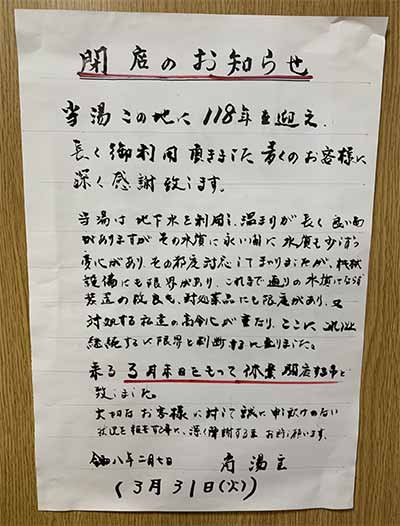 閉店のお知らせ
当湯この地に118年を迎え、
長く御利用頂きました多くのお客様に
深く感謝致します。
当湯は地下水を利用し、温まりが長く良い面
がありますがその水質に永い間に水質も少しづつ
変化があり、その都度対応してまいりましたが、機械
設備にも限界があり、これまで通りの水質にする
装置の改良も、対処薬品にも限度があり、又
対処する私達の高令化が重なり、ここに
継続するに限界と判断するに至りました。
来る3月末日をもって休業閉店する事と
致しました。
大切なお客様に対して誠に申し訳のない
状況を
令和八年二月七日 湯主
(3月31日(火))